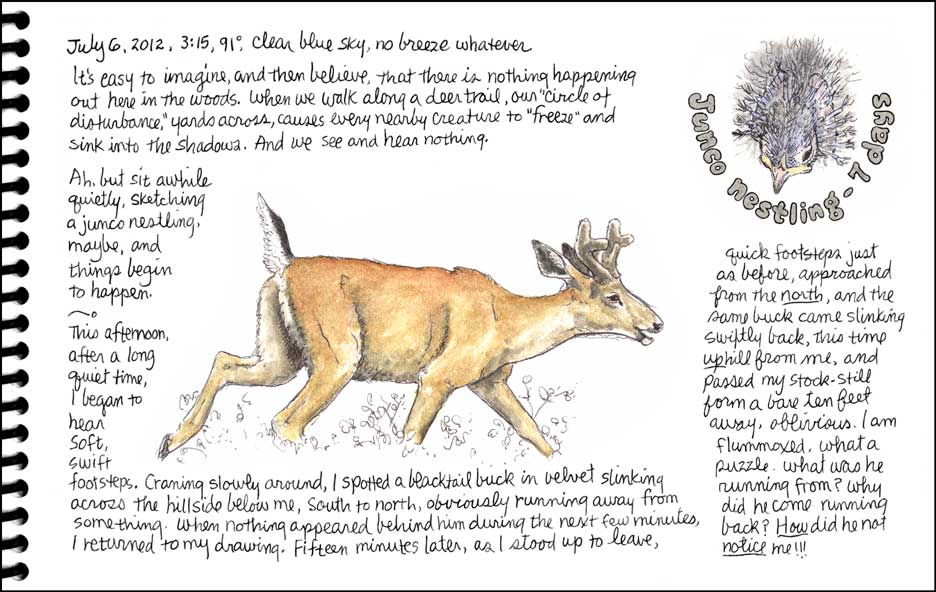 July 6, 2012, 3:15, 91°, clear blue sky, no breeze whatever
It's easy to imagine, and then believe, that there is nothing happening
out here in the woods. When we walk along a deer trail, our "circle of
disturbance," yards across, causes every nearby creature to "freeze" and
sink into the shadows. And we see and hear nothing.
Ah, but sit awhile
quietly, sketching
a junco nestling,
maybe, and
things begin
to happen.
This afternoon,
after a long
quiet time,
I began to
hear
soft,
swift
footsteps. Craning slowly around, I spotted a blacktail buck in velvet slinking
across the hillside below me, south to north, obviously running away from
something. When nothing appeared behind him during the next few minutes,
I returned to my drawing. Fifteen minutes later, as I stood up to leave,
Junco nestling - 7 days
quick footsteps just
as before, approached
from the north, and the
same buck came slinking
swiftly back, this time
uphill from me, and
passed my stock-still
form a bare ten feet
away, oblivious. I am
flummoxed. What a
puzzle. What was he
running from? Why
did he come running
back? How did he not
notice me!!!